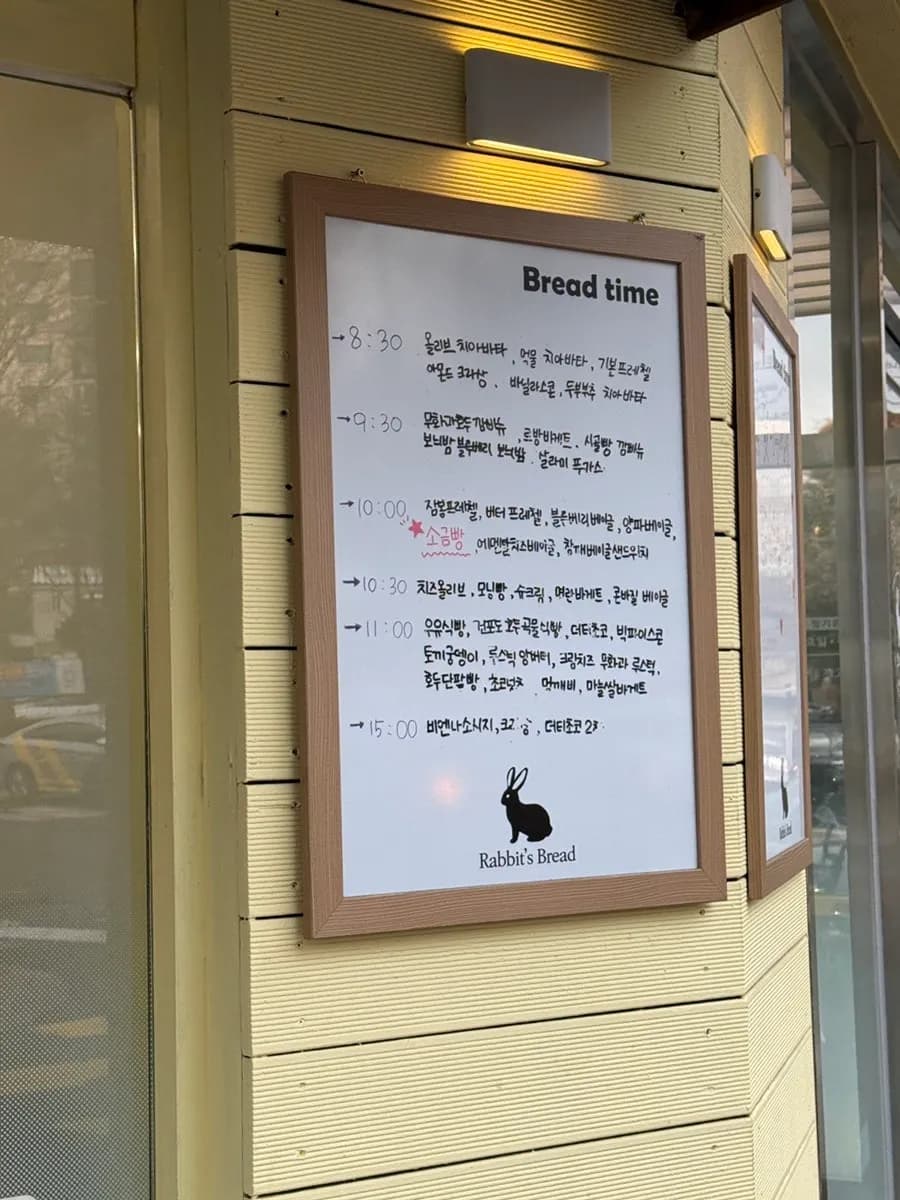 Bread time
→8:30 올리브 치아바타, 먹물 치아바타, 기본프레첼
아몬드 크라상, 바닐라스콘, 두부부추 치아바타
→9:30 무화과호두깜빠뉴, 르방바게트, 시골빵 깜빠뉴
보늬밤 블루베리 보늬밤, 살라미 푸가스
→10:00 잠봉프레첼, 버터 프레첼, 블루베리베이글, 양파베이글,
★소금빵, 에멘탈치즈베이글, 참깨베이글샌드위치
→10:30 치즈올리브, 모닝빵, 슈크림, 명란바게트, 콘바질 베이글
→11:00 우유식빵, 건포도호두곡물식빵, 더티초코, 빅파이스콘
토끼궁뎅이, 루스틱 앙버터, 크림치즈 무화과 루스틱,
호두단팥빵, 초코넛츠 먹깨비, 마늘쌀바게트
→15:00 비엔나소시지, 더티초코 2차
Rabbit's Bread